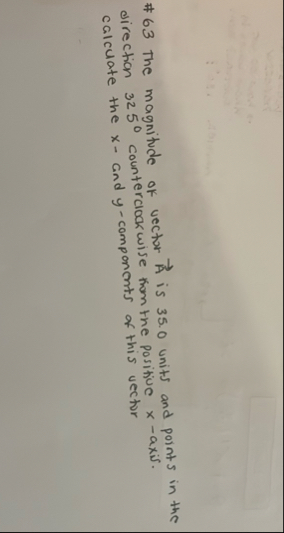 # 63 The magnitude of vector A⃗ is 35.0 units and points in the
direction 325° counterclockwise from the positive x-axis.
calculate the x- and y-components of this vector